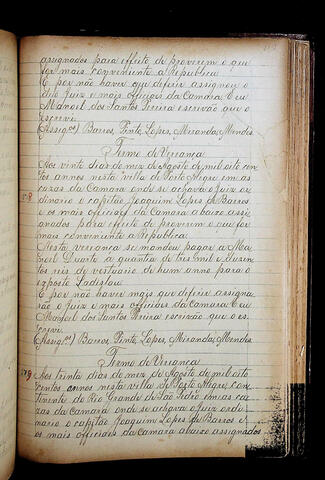 assignados para effeito de proverem o que
for mais conveniente a Republica
E por não haver que deferir assignou o
dito Juiz e mais officiaes da Camara. E eu
Manoel dos Santos Pereira escrivão que o
Escrevi.
(Assig.os) Barros, Pinto, Lopes, Miranda, Mendes
Termo de Veriança
Aos vinte dias do mez de Agosto de mil oito cen
tos annos nesta villa de Porto Alegre em as
cazas da Camara onde se achava o Juiz or
dinario o capitão Joaquim Lopes de Barros
e os mais officiaes da Camara abaixo assi
gnados para effeito de proverem o que for
mais conveniente a Republica.
Nesta veriança se mandou pagar a Ma
noel Duarte a quantia de tres mil e duzen
tos reis de vestuario de hum anno para o
exposto Ladislau
E por não haver mais que deferir assigna
rão o Juiz e mais officiaes da Camara. E eu
Manoel dos Santos Pereira escrivão que o es
crevi.
(Assig.os) Barros, Pinto, Lopes, Miranda, Mendes
Termo de Veriança
Aos trinta dias do mez de Agosto de mil oito
centos annos nesta villa de Porto Alegre, con
tinente do Rio Grande de São Pedro em as ca
zas da Camara onde se achava o Juiz ordi
nario o capitão Joaquim Lopes de Barros e
os mais officiaes da Camara abaixo assignados